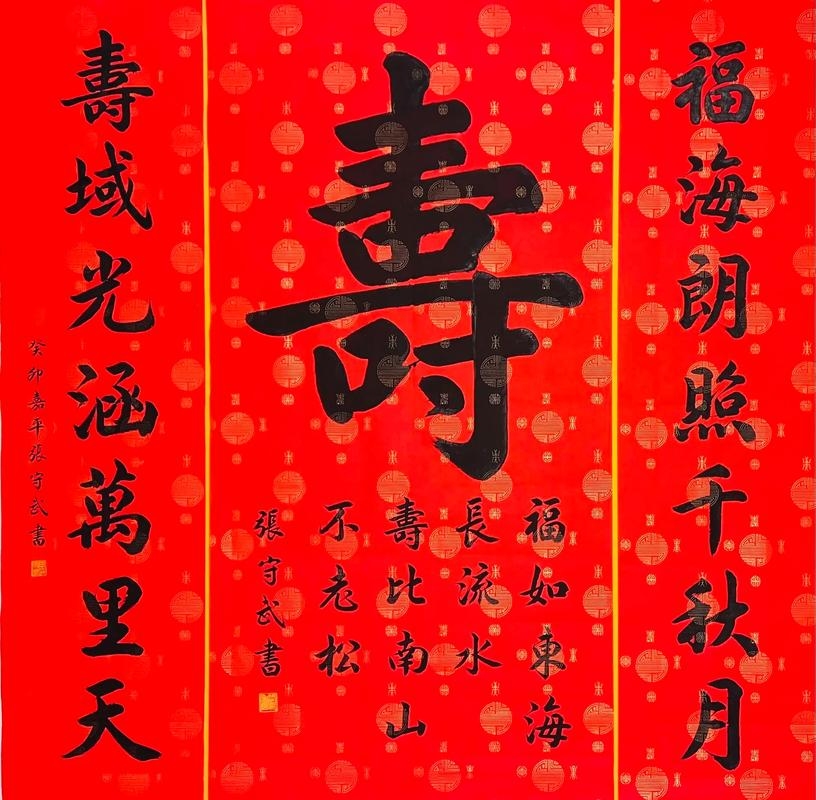 福海朗照千秋月
壽
福如東海
長流水
壽比南山
不老松
張守武書
壽域光涵萬里天
癸卯嘉平張守武書